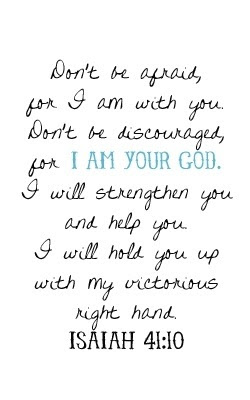 Don't be afraid,
for I am with you.
Don't be discouraged,
for I AM YOUR GOD.
I will strengthen you
and help you.
I will hold you up
with my victorious
right hand.
ISAIAH 41:10